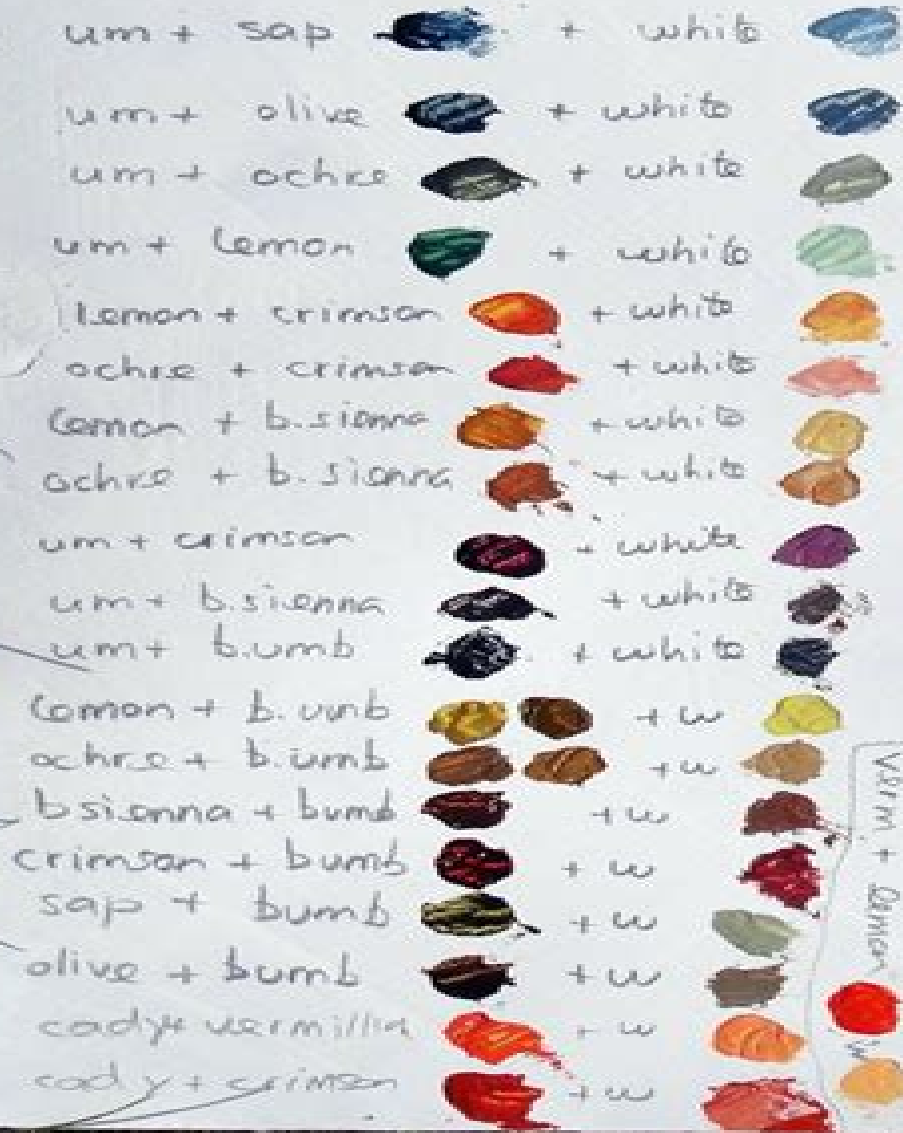 um + sap + white
um + olive + white
um + ochre + white
um + lemon + white
lemon + crimson + white
ochre + crimson + white
lemon + b.sienna + white
ochre + b.sienna + white
um + crimson + white
um + b.sienna + white
um + b.umb + white
lemon + b.umb + w
ochre + b.umb + w
bsienna + bumb + w
crimson + bumb + w
sap + bumb + w
olive + bumb + w
cady+ vermillin + w
cad y + crimson + w
verm + lemon
w